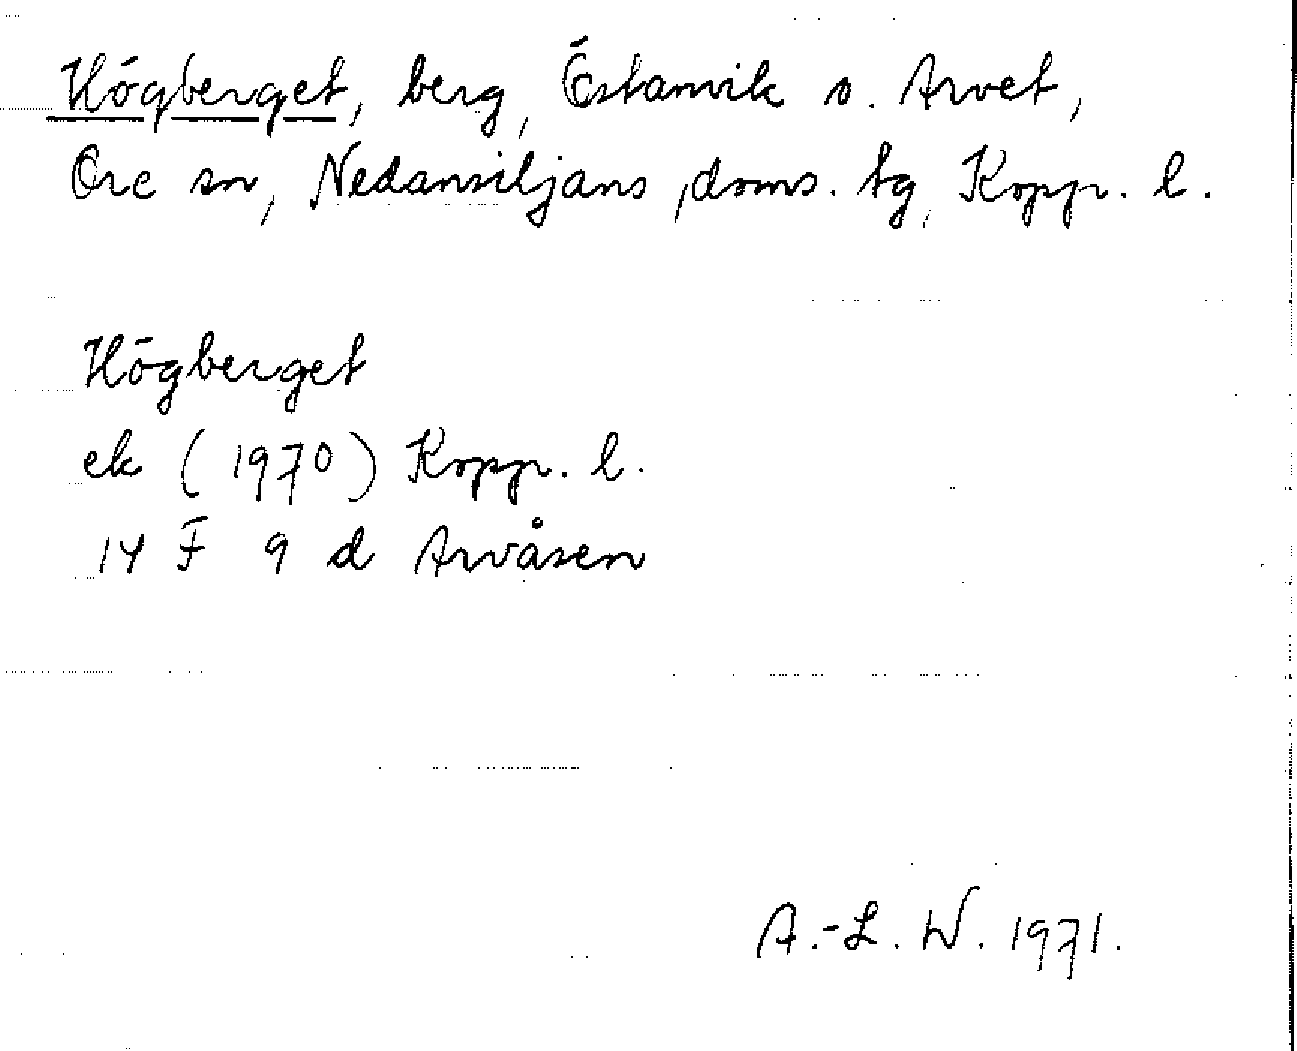 Högberget, berg, Östanvik o. Arvet,
Ore sn, Nedansiljans doms. tg, Kopp. l.
Högberget
ek (1970) Kopp. l.
14 F 9 d Arvåsen
A.-L. W. 1971.